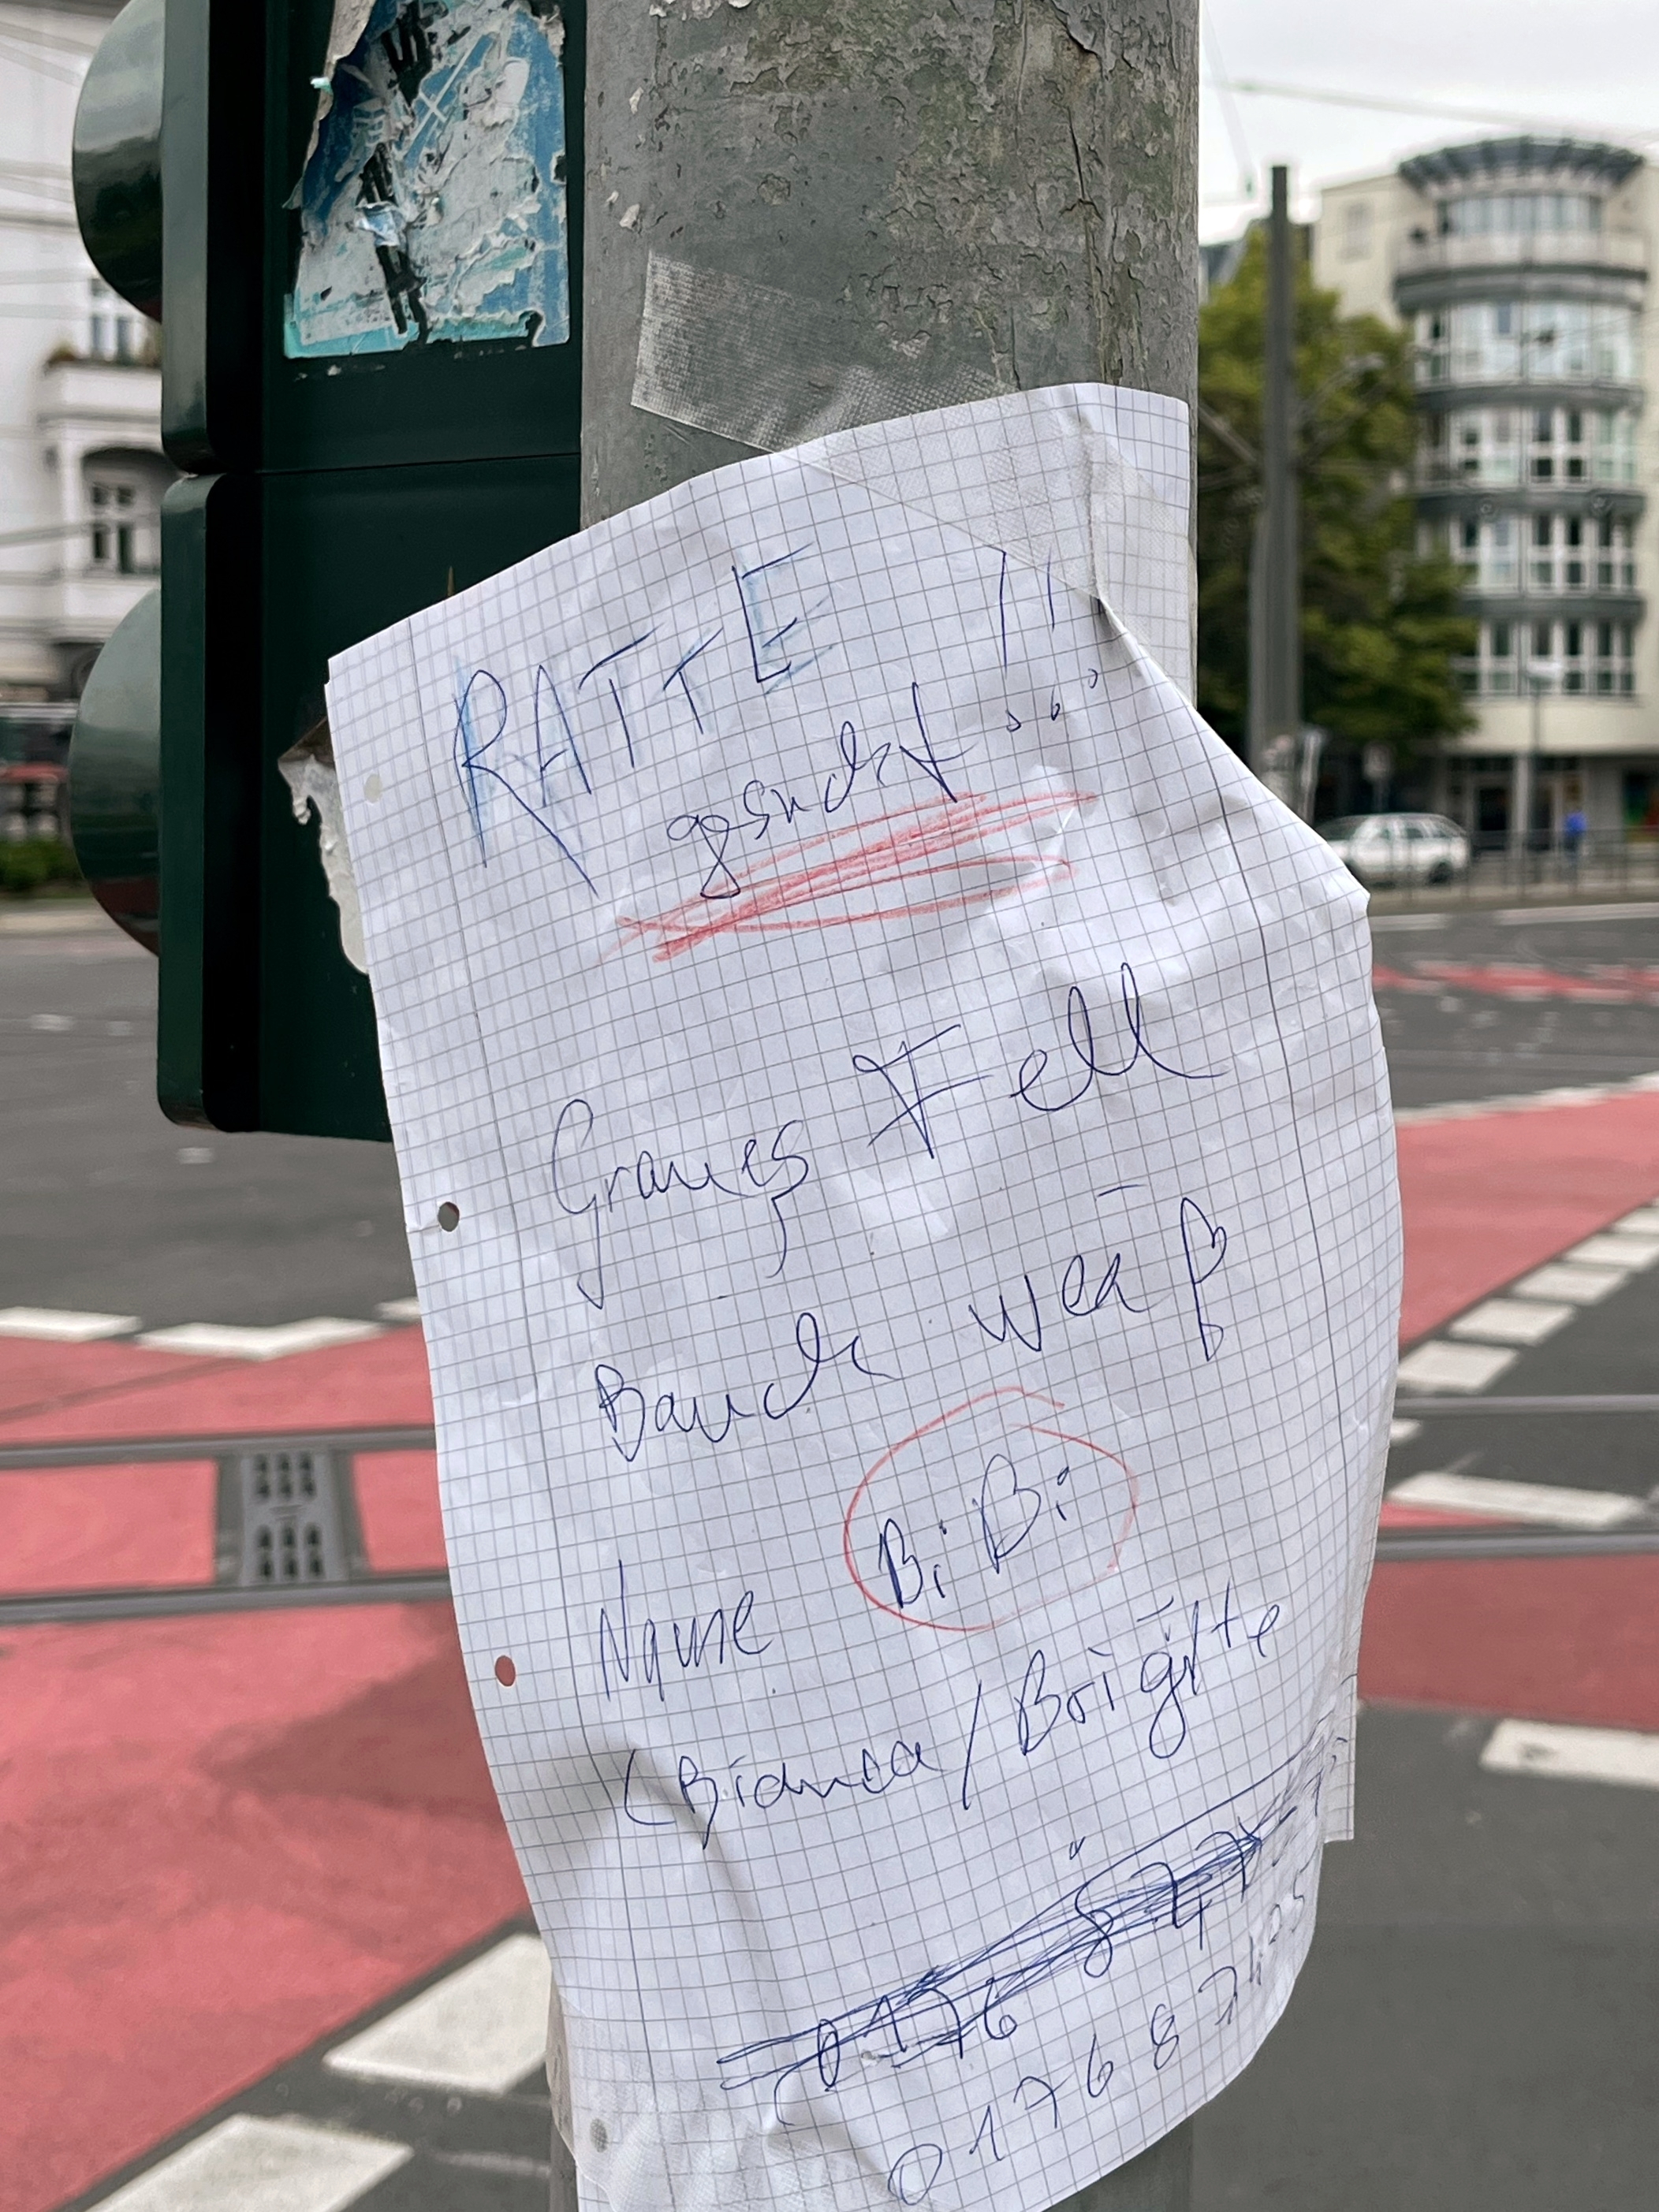 RATTE !!
gesucht...
Graues Fell
Bauch weiß
Name BiBi
(Bianca/Brigitte
0176 8
0176 874